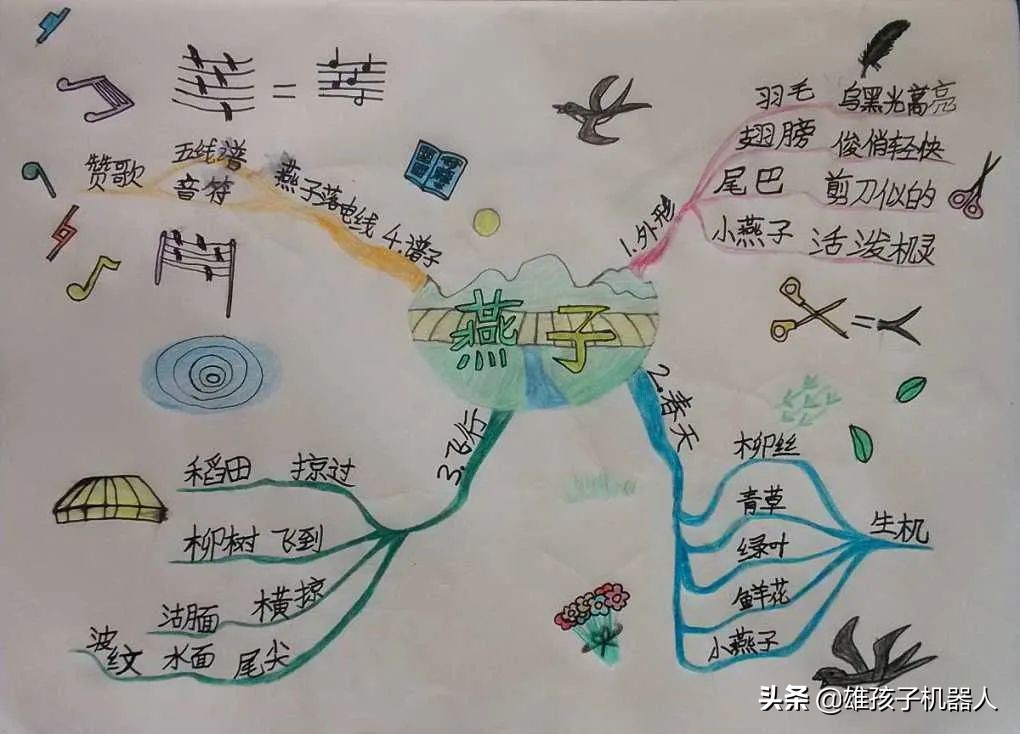 燕子
1.外形
羽毛 乌黑光亮
翅膀 俊俏轻快
尾巴 剪刀似的
小燕子 活泼机灵
=
2.春天
柳丝
青草
绿叶
鲜花
小燕子
生机
3.飞行
稻田 掠过
柳树 飞到
沽面 横掠
波纹 水面 尾尖
4.谱子
燕子落电线
五线谱
音符
赞歌
=
头条 @雄孩子机器人